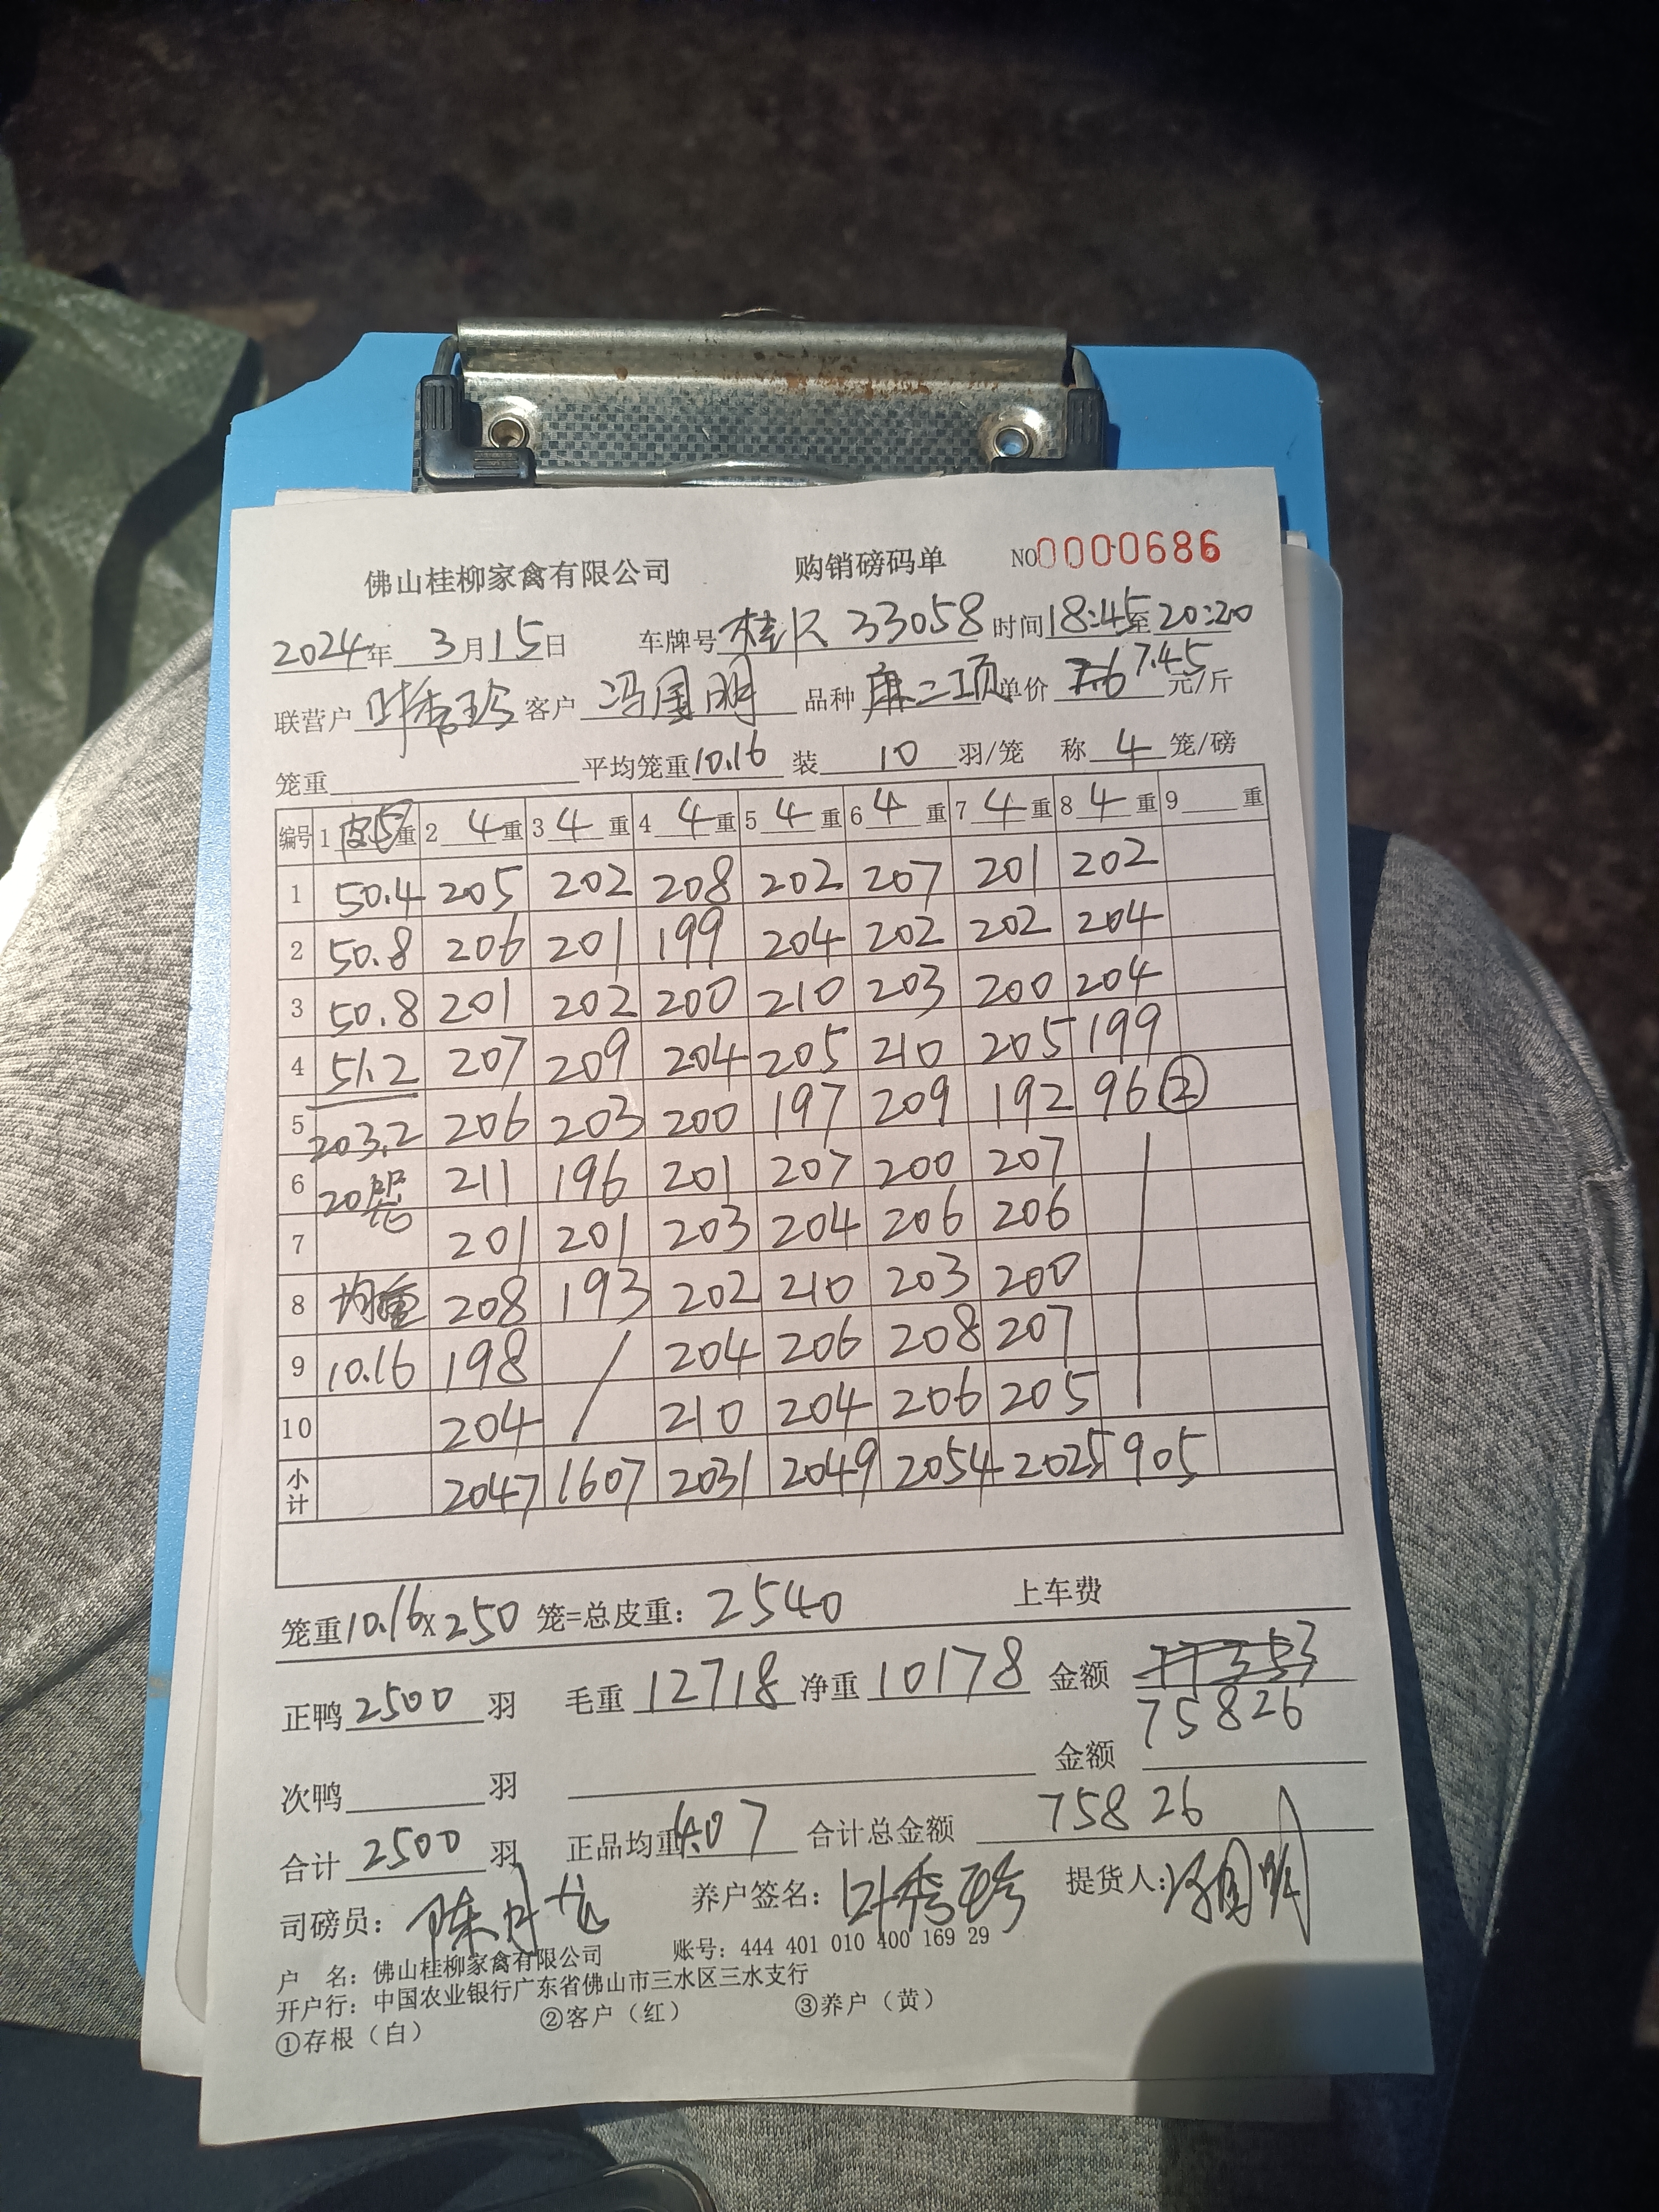 佛山桂柳家禽有限公司 购销磅码单 NO0000686
2024年 3月15日 车牌号 桂 33058 时间18:45至20:20
联营户 叶秀珍 客户 冯国明 品种 单价 7.45 元/斤
笼重 平均笼重10.16 装 10 羽/笼 称 4 笼/磅
编号 1 皮5重 2 4重 3 4重 4 4重 5 4重 6 4重 7 4重 8 4重 9 重
1 50.4 205 202 208 202 207 201 202
2 50.8 206 201 199 204 202 202 204
3 50.8 201 202 200 210 203 200 204
4 51.2 207 209 204 205 210 205 199
5 203.2 206 203 200 197 209 192 96 ②
6 20笼 211 196 201 207 200 207
7 201 201 203 204 206 206
8 均重 208 193 202 210 203 200
9 10.16 198 / 204 206 208 207
10 204 / 210 204 206 205
小计 2047 1607 2031 2049 2054 2025 905
笼重10.16x250 笼=总皮重: 2540 上车费
正鸭 2500 羽 毛重 12718 净重 10178 金额 77353
75826
次鸭 羽 金额
合计 2500 羽 正品均重4.07 合计总金额 75826
司磅员: 陈 龙 养户签名: 叶秀珍 提货人: 冯国明
户 名: 佛山桂柳家禽有限公司 账号: 444 401 010 400 169 29
开户行: 中国农业银行广东省佛山市三水区三水支行
①存根（白） ②客户（红） ③养户（黄）